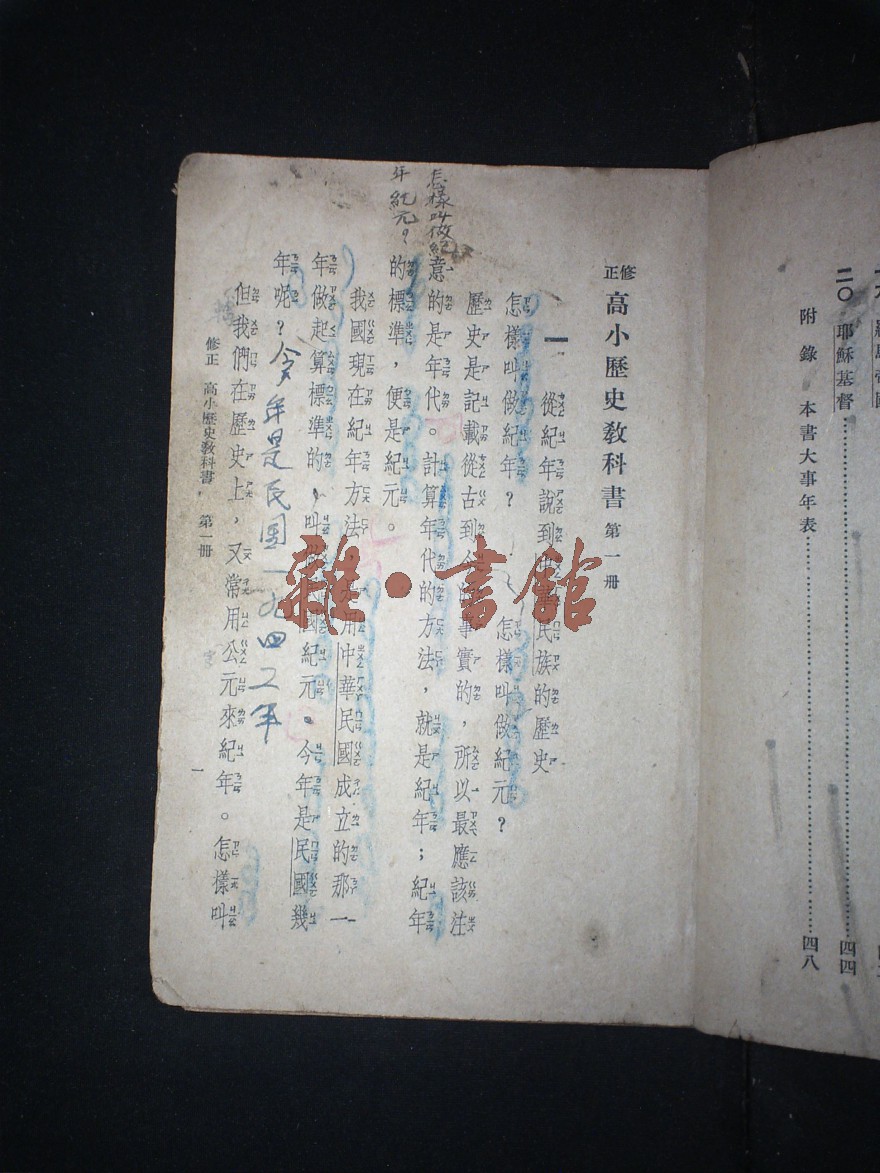 二〇 耶穌基督……四四
附錄 本書大事年表……四八
修正 高小歷史教科書 第一冊
一 從紀年說到中華民族的歷史
怎樣叫做紀年？ 怎樣叫做紀元？
歷史是記載從古到今的事實的，所以最應該注
意的是年代。計算年代的方法，就是紀年；紀年
的標準，便是紀元。
我國現在紀年方法，是用中華民國成立的那一
年做起算標準的，叫做民國紀元。今年是民國幾
年呢？
但我們在歷史上，又常用公元來紀年。怎樣叫
修正 高小歷史教科書，第一冊
一
怎樣叫做紀
年紀元？
今年是民國一九四二年
雜·書館